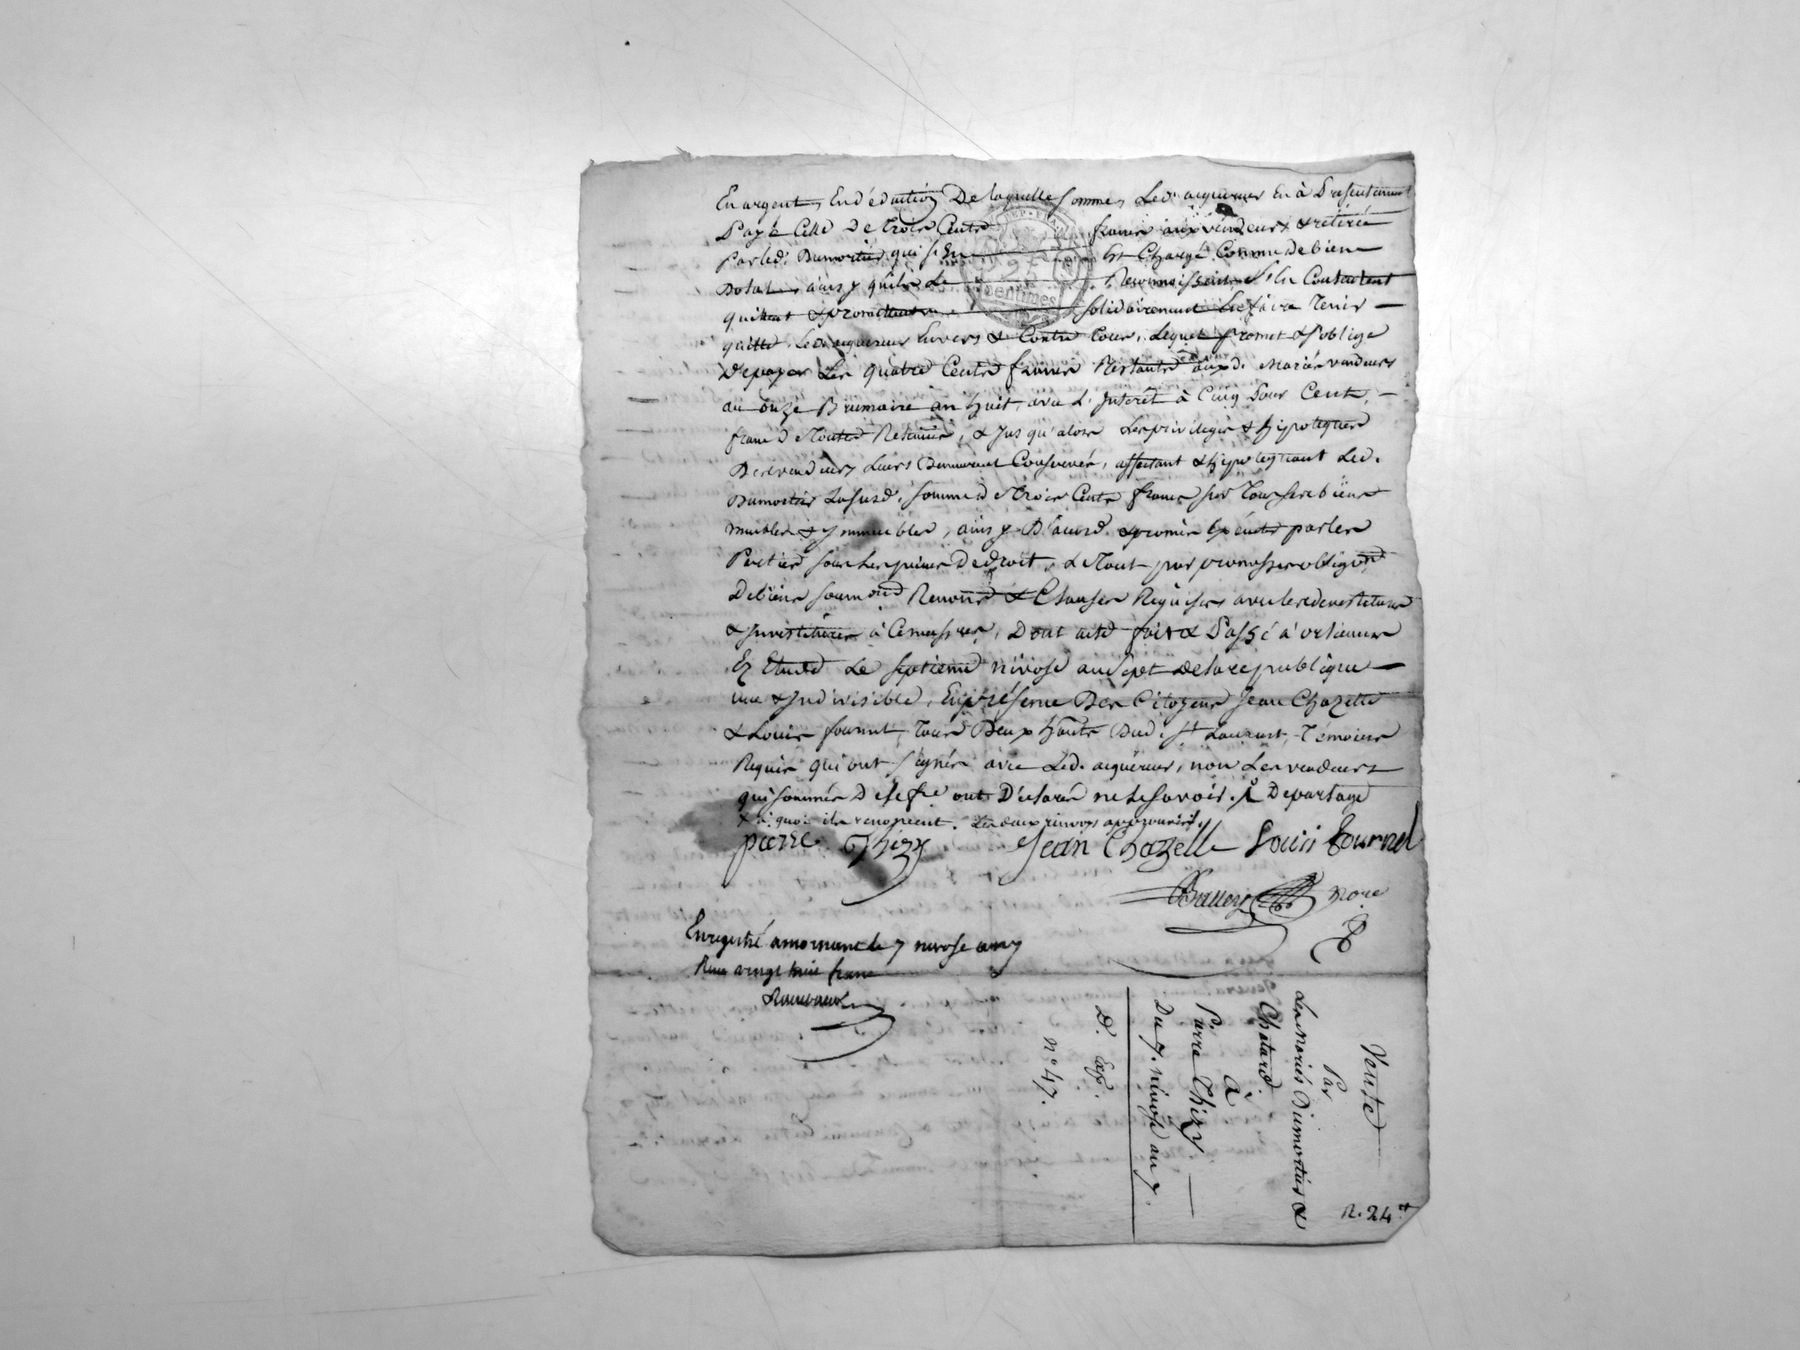 En argent, En déduition De laquelle somme, Led. aquereur En à Présentement
Payé Celle De trois Cents francs auxd. vendeurs & retirée
Par led. Dumortier qui s'En Est Chargé Comme de bien
Dotal, ainsy qu'ils Le Reconnoissent S'En Contentent
quittent & promettent solidairement Le faire tenir
quitte Led. aquereur Envers & Contre tous, Lequel promet & s'oblige
De payer Les quatre Cents francs Restants auxd. Mariés vendeurs
au onze Brumaire an huit, avec L'Interêt à Cinq Pour Cent,
franc De toutes Retenues, & Jusqu'alors Les privileges & hipoteques
Des vendeurs Leurs Demeurent Conservés, affectant & hipotequant Led.
Dumortier La susd. somme De trois Cents francs sur tous ses biens
meubles & Immeubles, ainsy D'acord. & promis Exécuter par les
Parties sous Les peines De droit, & tout par promesses obligons
De biens soumons Renons & Clauses Requises avec les devestitures
& Investitures à Ce nécessres, Dont acte fait & Passé à
En Etude Le septieme nivose an sept de la republique
une & Indivisible, En présence Des Citoyens Jean Chazelle
& Louis fournel, tous Deux Hants Dud. St Laurent, Témoins
Requis qui ont signés avec Led. aquéreur, non Les vendeurs
qui sommés De le fre ont Déclaré ne Le savoir. De partage
& à quoi ils renoncent. Les deux renvoys approuvés
pierre Thizy Jean Chazelle Louis Fournel
nore
Enregistré a mornant le 7 nivose an 7
Reçu vingt huit francs
25
centimes
Vente
Par
Les Mariés Dumortier &
Chatard
à
Pierre Thizy
Du 7. nivose an 7.
D. Exp.
N° 47.
R. 24#